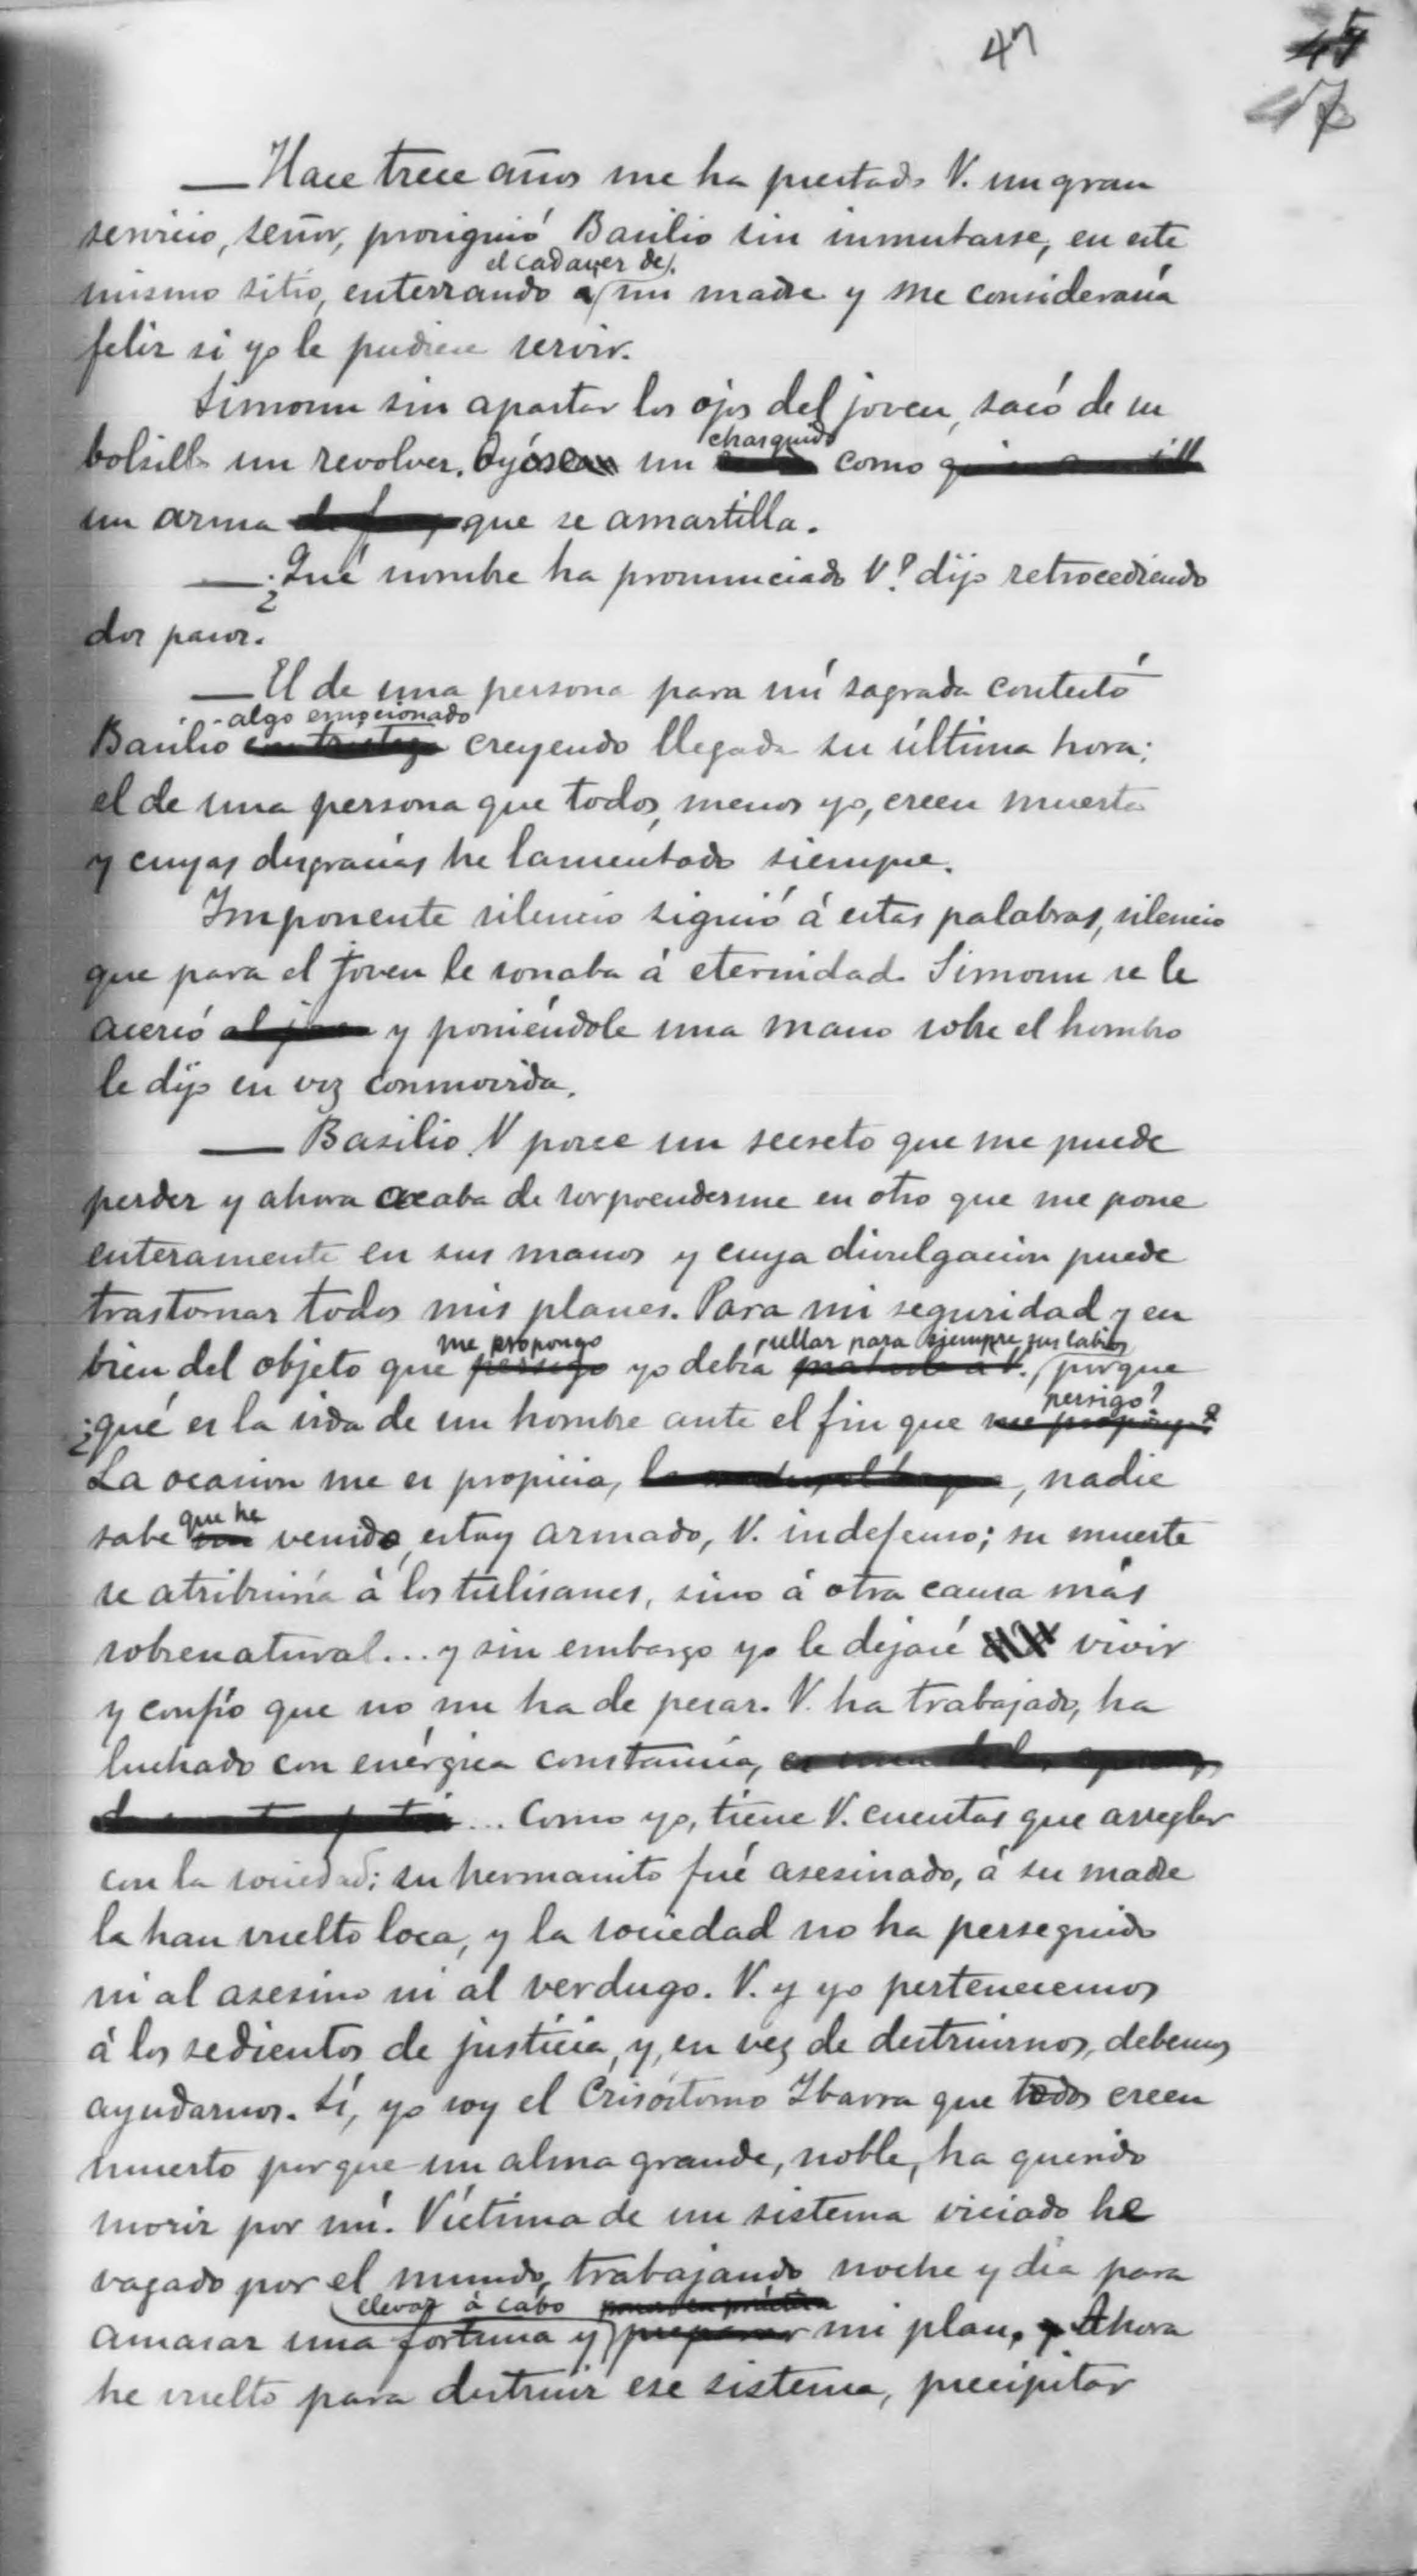 47
47
— Hace trece años me ha prestado V. un gran
servicio, señor, prosiguió Basilio sin inmutarse, en este
el cadaver de
mismo sitio, enterrando a mi madre y me consideraría
feliz si yo le pudiese servir.
Simoun sin apartar los ojos del joven, sacó de su
chasquido
bolsillo un revolver. Oyóse un como
un arma que se amartilla.
— ¿Qué nombre ha pronunciado V.? dijo retrocediendo
dos pasos.
— El de una persona para mí sagrada contestó
algo emocionado
Basilio creyendo llegada su última hora;
el de una persona que todos, menos yo, creen muerta
y cuyas desgracias he lamentado siempre.
Imponente silencio siguió á estas palabras, silencio
que para el joven le sonaba á eternidad. Simoun se le
acercó y poniéndole una mano sobre el hombro
le dijo en voz conmovida.
— Basilio, V posee un secreto que me puede
perder y ahora acaba de sorprenderme en otro que me pone
enteramente en sus manos y cuya divulgacion puede
trastornar todos mis planes. Para mi seguridad y en
me propongo sellar para siempre sus labios
bien del objeto que persigo yo debia porque
persigo?
¿qué es la vida de un hombre ante el fin que me propongo?
La ocasion me es propicia, , nadie
que he
sabe venido, estoy armado, V. indefenso; su muerte
se atribuiría á los tulisanes, sino á otra causa más
sobrenatural... y sin embargo yo le dejaré vivir
y confío que no me ha de pesar. V. ha trabajado, ha
luchado con enérgica constancia,
... Como yo, tiene V. cuentas que arreglar
con la sociedad; su hermanito fué asesinado, á su madre
la han vuelto loca, y la sociedad no ha perseguido
ni al asesino ni al verdugo. V. y yo pertenecemos
á los sedientos de justicia, y, en vez de destruirnos, debemos
ayudarnos. Sí, yo soy el Crisóstomo Ibarra que todos creen
muerto porque un alma grande, noble, ha querido
morir por mí. Víctima de un sistema viciado he
vagado por el mundo, trabajando noche y dia para
llevar á cabo poner en práctica
amasar una fortuna y preparar mi plan. Ahora
he vuelto para destruir ese sistema, precipitar